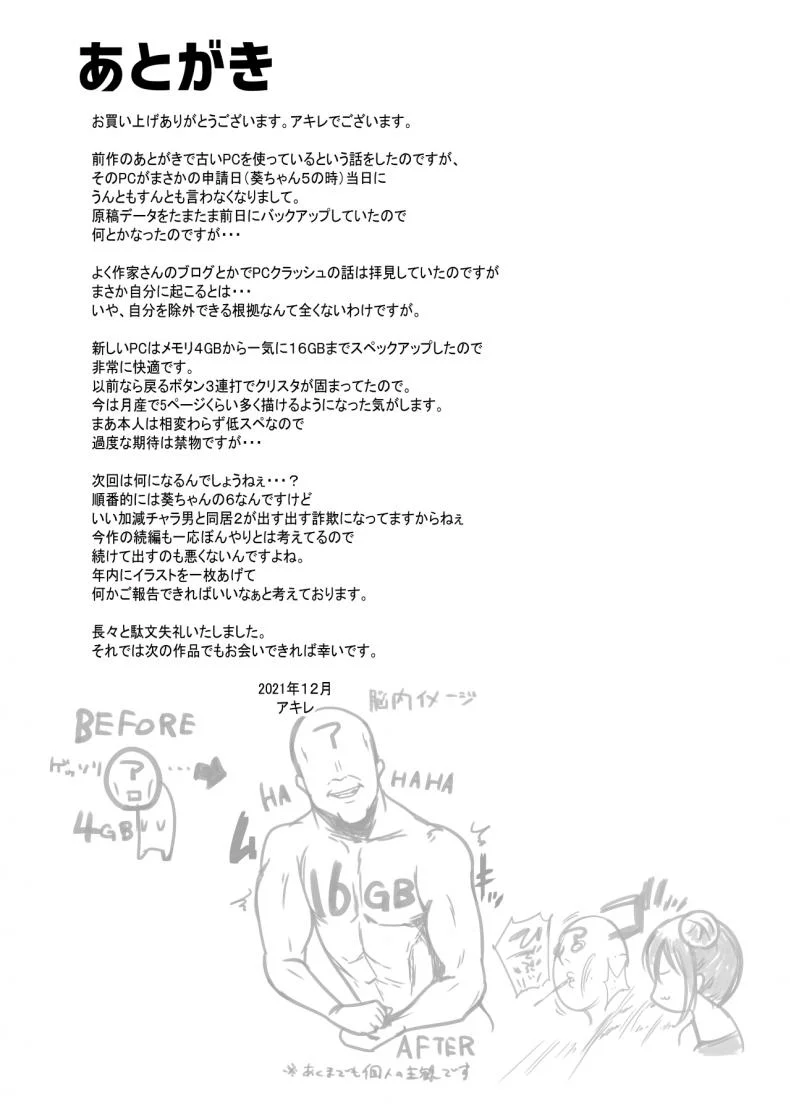 あとがき
お買い上げありがとうございます。アキレでございます。
前作のあとがきで古いPCを使っているという話をしたのですが、
そのPCがまさかの申請日(葵ちゃん5の時)当日に
うんともすんとも言わなくなりまして。
原稿データをたまたま前日にバックアップしていたので
何とかなったのですが・・・
よく作家さんのブログとかでPCクラッシュの話は拝見していたのですが
まさか自分に起こるとは・・・
いや、自分を除外できる根拠なんて全くないわけですが。
新しいPCはメモリ4GBから一気に16GBまでスペックアップしたので
非常に快適です。
以前なら戻るボタン3連打でクリスタが固まってたので。
今は月産で5ページくらい多く描けるようになった気がします。
まあ本人は相変わらず低スペなので
過度な期待は禁物ですが・・・
次回は何になるんでしょうねぇ・・・?
順番的には葵ちゃんの6なんですけど
いい加減チャラ男と同居2が出す出す詐欺になってますからねぇ
今作の続編も一応ぼんやりとは考えてるので
続けて出すのも悪くないんですよね。
年内にイラストを一枚あげて
何かご報告できればいいなぁと考えております。
長々と駄文失礼いたしました。
それでは次の作品でもお会いできれば幸いです。
2021年12月
アキレ
脳内イメージ
BEFORE
ゲッソリ
ア
ロ
・・・
4GB
ア
HA
HAHA
ムキッ
16GB
AFTER
※あくまでも個人の主観です